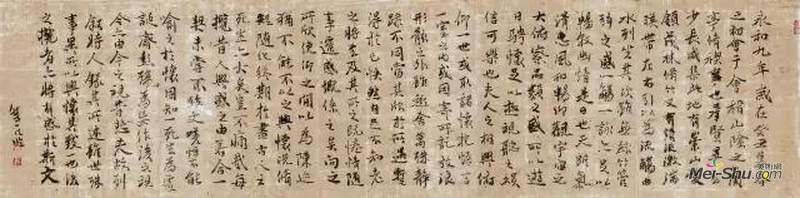 永和九年歲在癸丑暮春
之初會于會稽山陰之蘭
亭脩禊事也羣賢畢至
少長咸集此地有崇山峻
領茂林脩竹又有清流激湍
暎帶左右引以為流觴曲
水列坐其次雖無絲竹管
弦之盛一觴一詠亦足以
暢敘幽情是日也天朗氣
清惠風和暢仰觀宇宙之
大俯察品類之盛所以遊
目騁懷足以極視聽之娛
信可樂也夫人之相與俯
仰一世或取諸懷抱悟言
一室之內或因寄所託放浪
形骸之外雖趣舍萬殊靜
躁不同當其欣於所遇暫
得於己快然自足不知老
之將至及其所之既倦情隨
事遷感慨係之矣向之
所欣俛仰之間以為陳迹
猶不能不以之興懷況脩
短隨化終期於盡古人云
死生亦大矣豈不痛哉每
攬昔人興感之由若合一
契未嘗不臨文嗟悼不能
喻之於懷固知一死生為虛
誕齊彭殤為妄作後之視
今亦由今之視昔悲夫故列
敘時人錄其所述雖世殊
事異所以興懷其致一也後
之攬者亦將有感於斯文
Mei-Shu.com